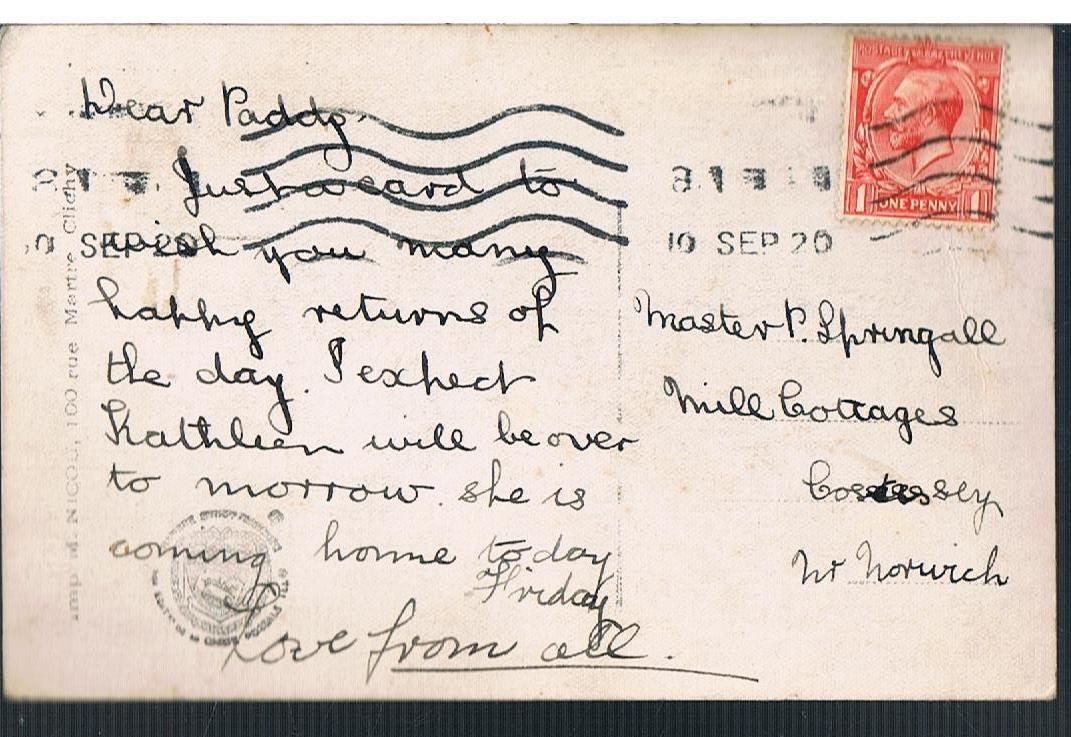 Dear Paddy
Just a card to
wish you many
happy returns of
the day. I expect
Kathleen will be over
to morrow she is
coming home to day
Friday
Love from all.
POSTAGE REVENUE
1 ONE PENNY 1
10 SEP 20
SEP 20
Master P. Springall
Mill Cottages
Cossey
Nr Norwich
Imp. M. NICOL, 100 rue Martre Clichy